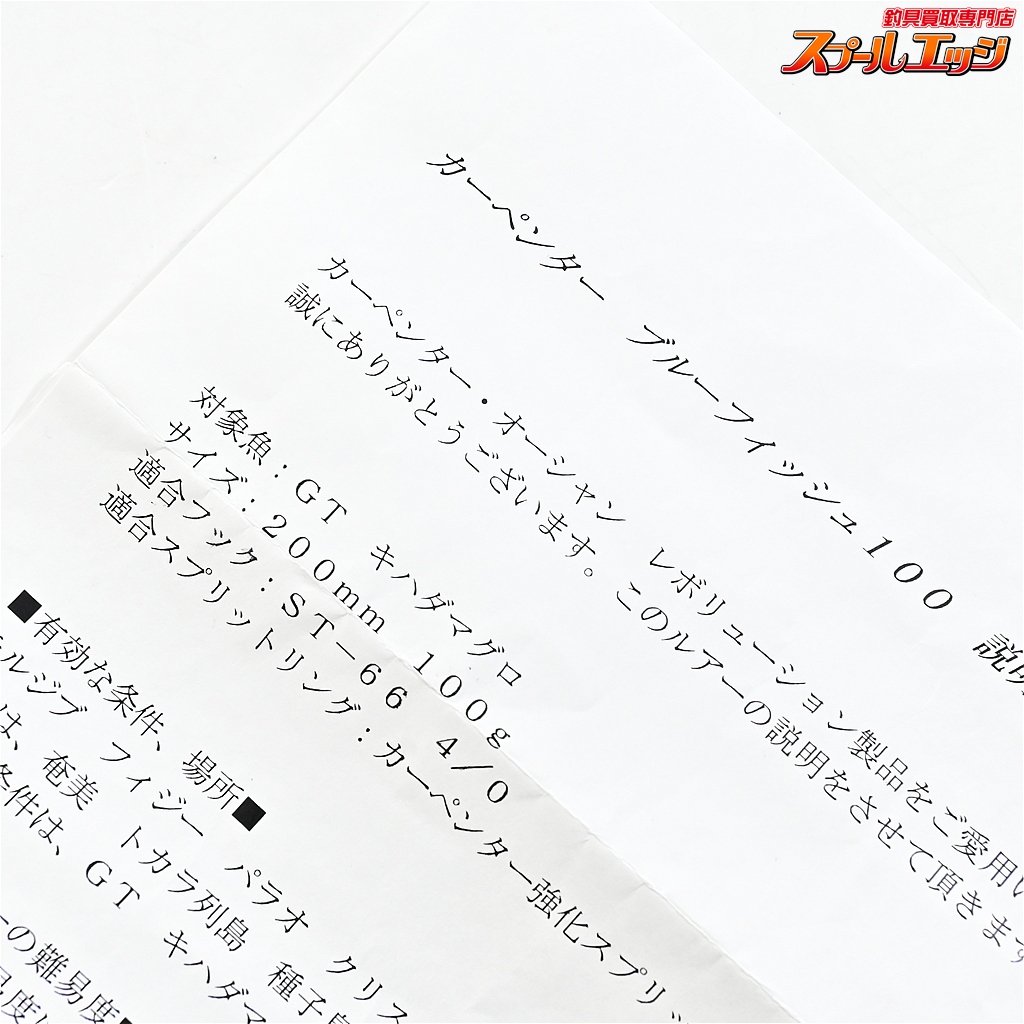 釣具買取専門店
スプールエッジ
カーペンター ブルーフィッシュ100 説明
カーペンター・オーシャン レボリューション製品をご愛用い
誠にありがとうございます。このルアーの説明をさせて頂きます
対象魚：GT キハダマグロ
サイズ：200mm 100g
適合フック：ST－66 4/0
適合スプリットリング：カーペンター強化スプリッ
■有効な条件、場所■
モルジブ フィジー パラオ クリス
は、奄美 トカラ列島 種子島
条件は、GT キハダマ
ーの難易度■